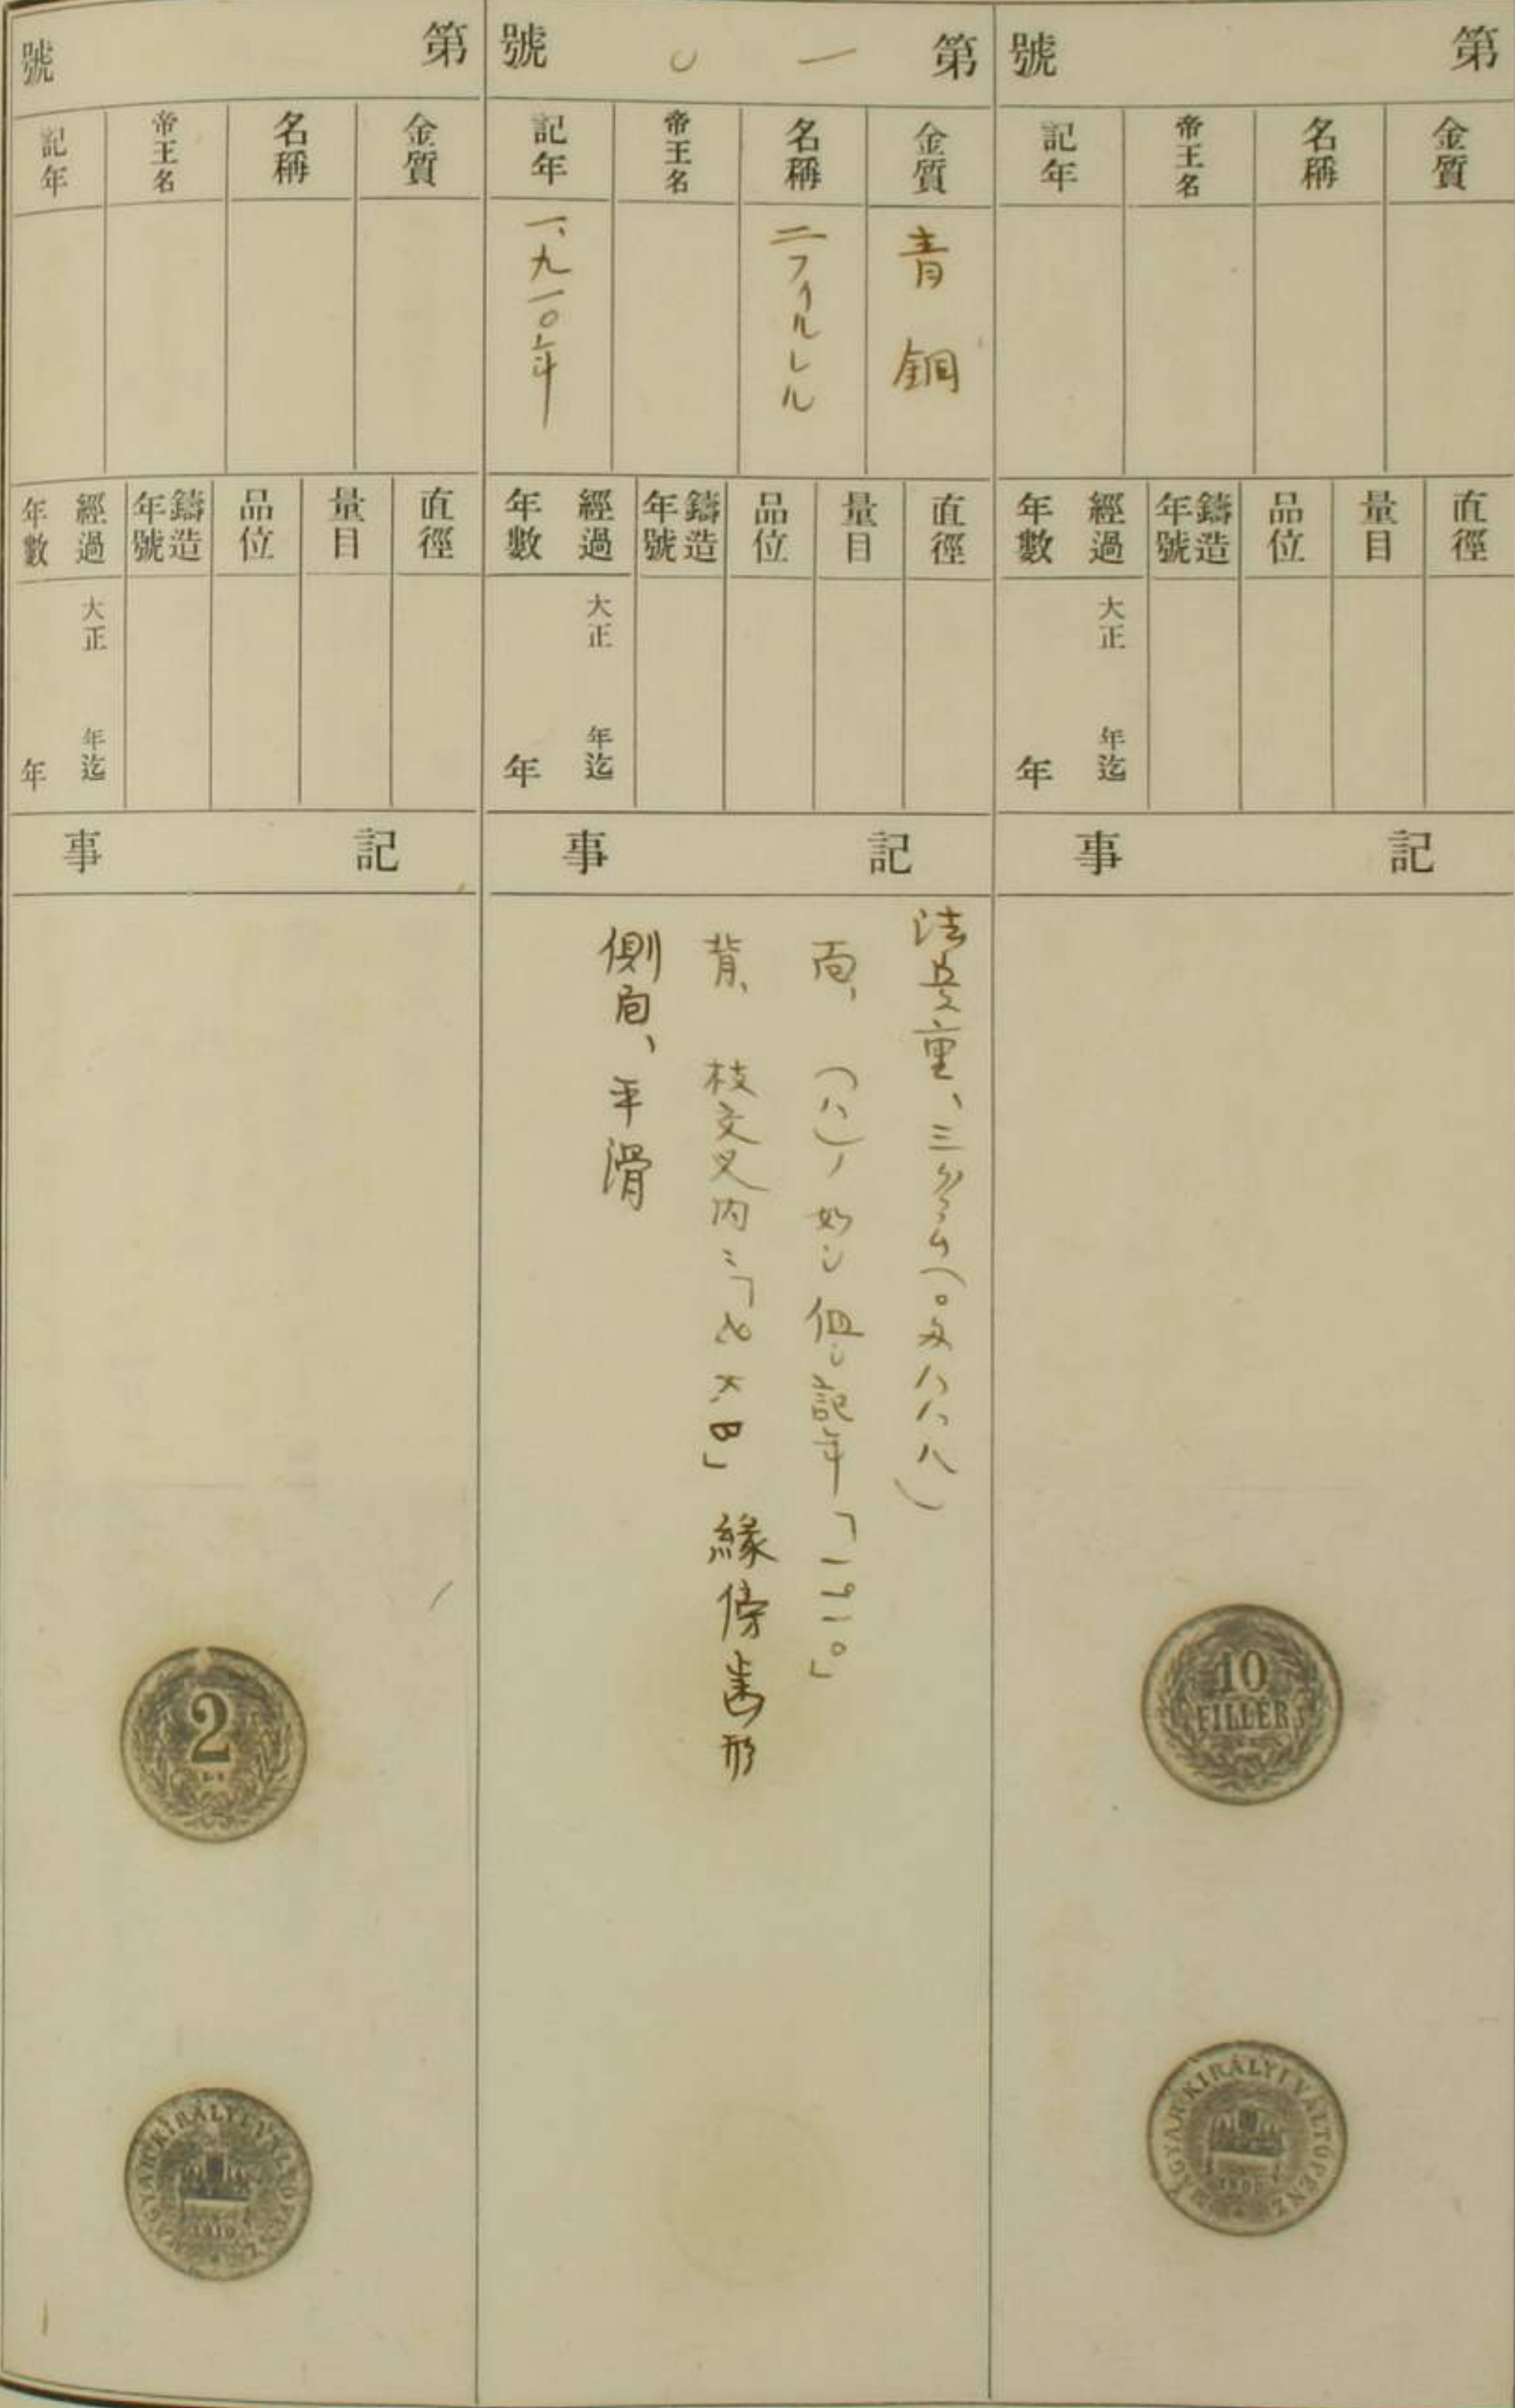 第 號
金質
名稱
帝王名
記年
直徑
量目
品位
鑄造年號
經過年數
大正 年迄
年
記 事
10
FILLER
MAGYAR KIRÁLYI VÁLTÓPÉNZ
第一〇號
金質
青銅
名稱
二フィルレル
帝王名
記年
一、九一〇年
直徑
量目
品位
鑄造年號
經過年數
大正 年迄
年
記 事
法量重、三グラム(〇匁八八八)
面、(八)ノ如シ但シ記年「1910」
背、枝交叉内ニ「2 K.B」縁傍歯形
側面、平滑
第 號
金質
名稱
帝王名
記年
直徑
量目
品位
鑄造年號
經過年數
大正 年迄
年
記 事
2
MAGYAR KIRÁLYI VÁLTÓPÉNZ
1910